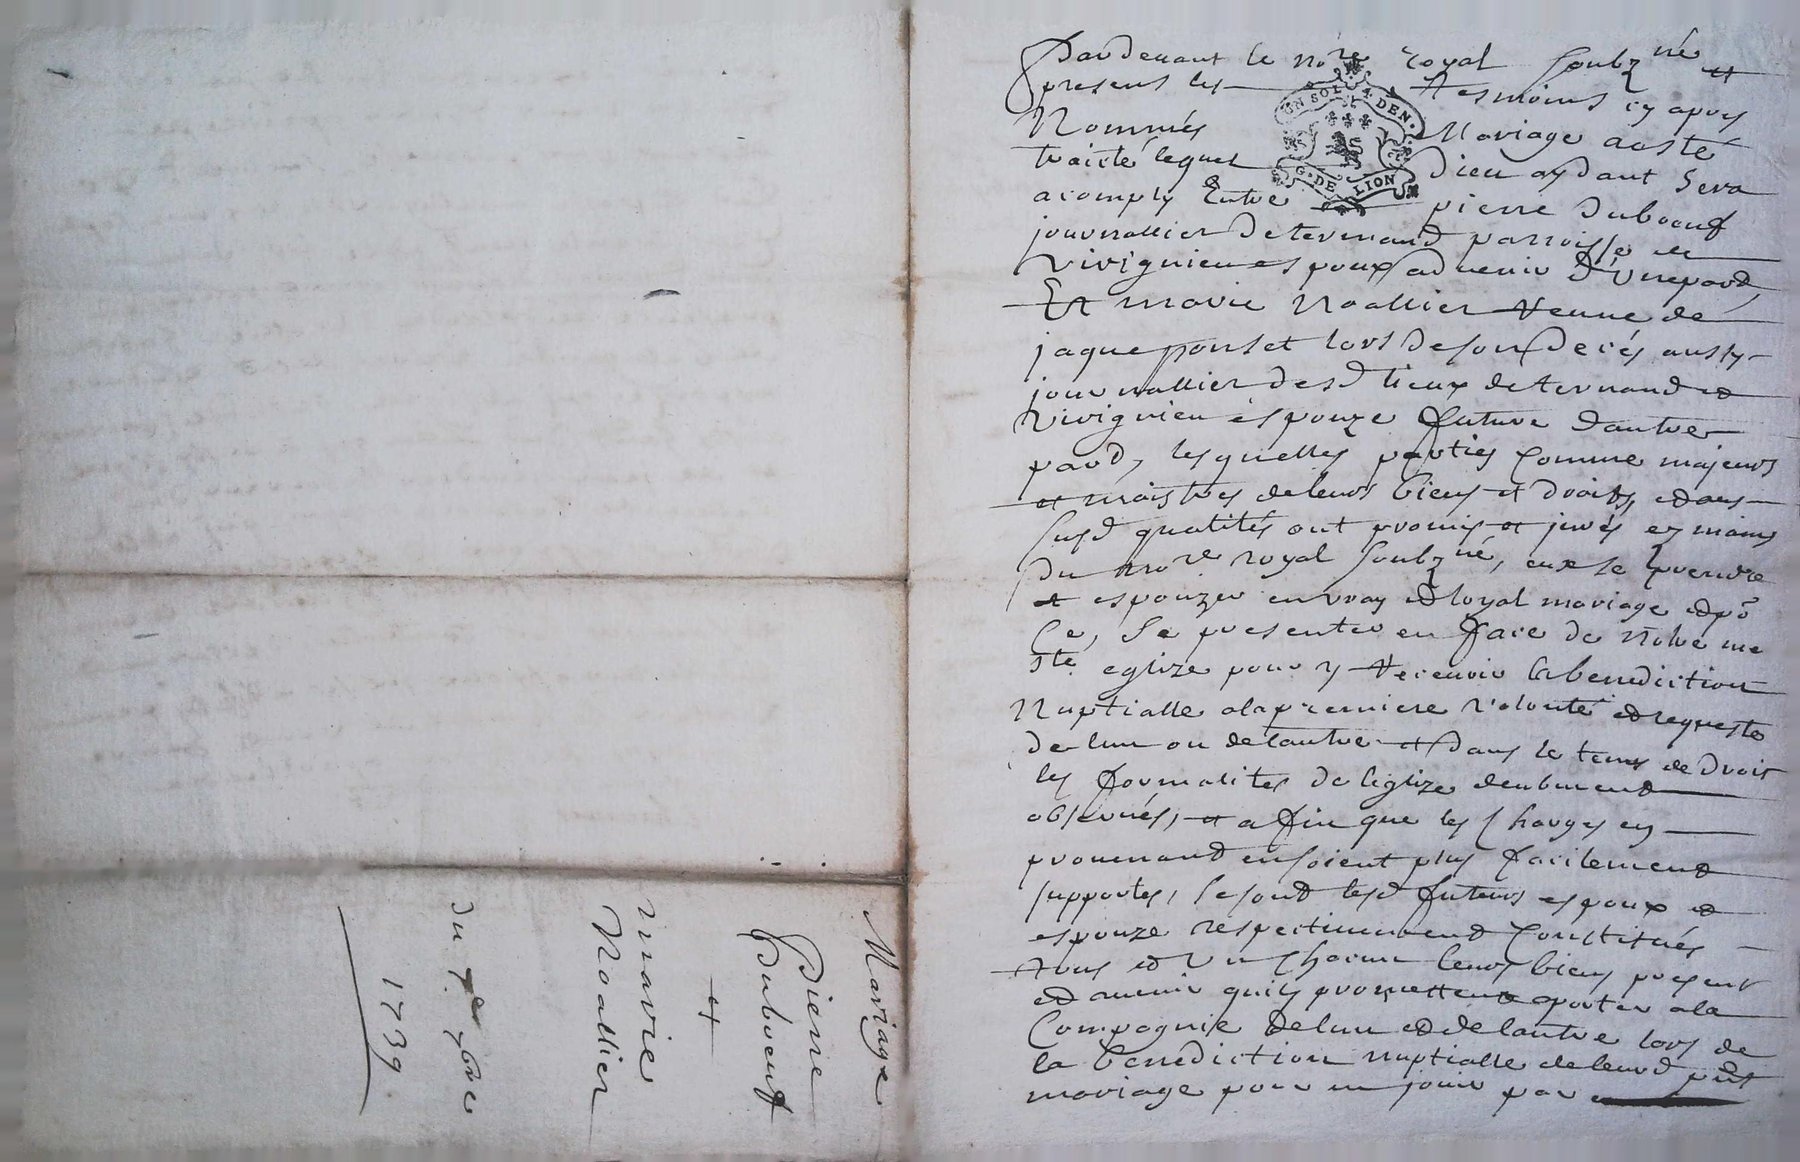 Mariage
Pierre
Duboeuf
et
marie
Noallier
du
1739.
Pardevant le no.re royal soubz.né et
presens les tesmoins cy apres
Nommés Mariage a esté
traicté lequel Dieu aydant sera
acomply Entre pierre duboeuf
journallier de ternand parroisse de
rivignieu espoux advenir d'une pard,
Et marie Noallier veuve de
jaque ponset lors de son decés aussy
journallier desd lieux de ternand et
Rivignieu espouze future dautre
pard, lesquelles parties comme majeurs
et maistres de leurs biens et droits, et aux
susd qualités ont promis et jurés ez mains
du no.re royal soubz.né, eux se prendre
et espouzer en vray et loyal mariage et po.r
ce, se presenter en face de notre me
ste eglize pour y recevoir la benediction
Nuptialle a la premiere volonté et requeste
de lun ou de lautre et dans le tems de droit
les formalités de leglize deubment
observés, et afin que les charges en
provenand en soient plus facilemend
supportes, se sond lesd futurs espoux et
espouze respectivemend constitués
tous et un chacun leurs biens present
et avenir quils promettend aporter a la
Compagnie de lun et de lautre lors de
la benediction nuptialle de leurd pnt
mariage pour en jouir par
G. DE LION
UN SOL 4 DEN.